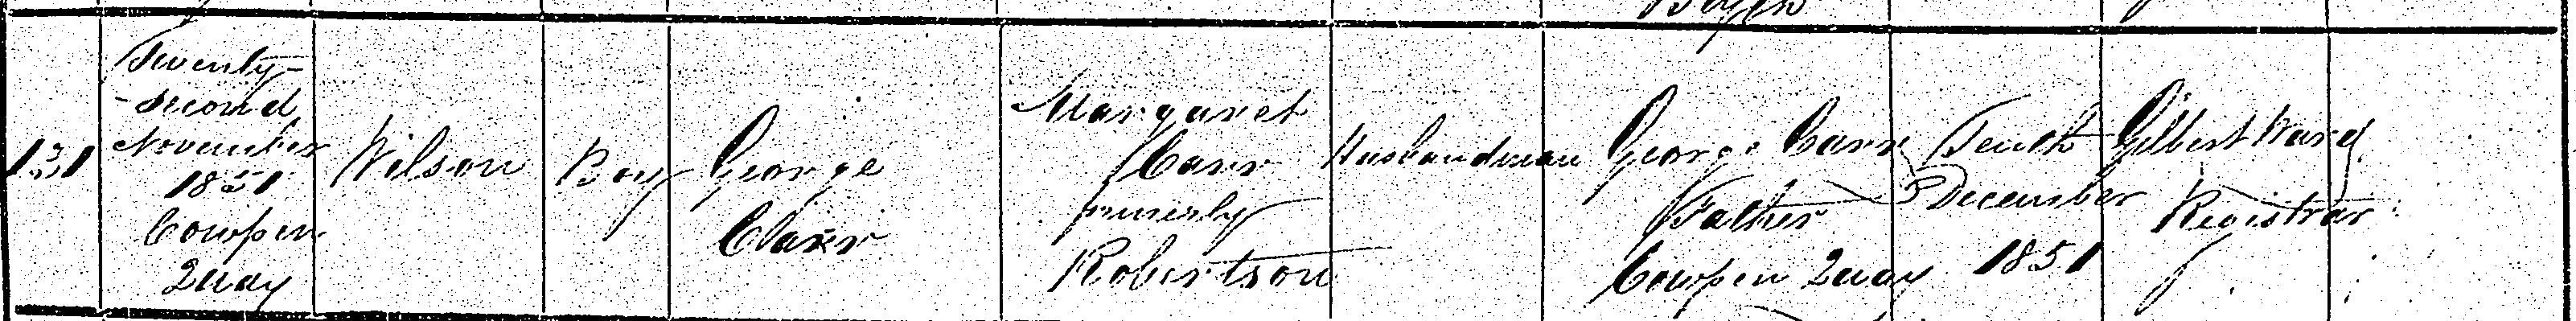 131
Twenty
-second
November
1851
Cowpen
Quay
Wilson
Boy
George
Carr
Margaret
Carr
formerly
Robertson
Husbandman
George Carr
Father
Cowpen Quay
Tenth
December
1851
Gilbert Ward
Registrar